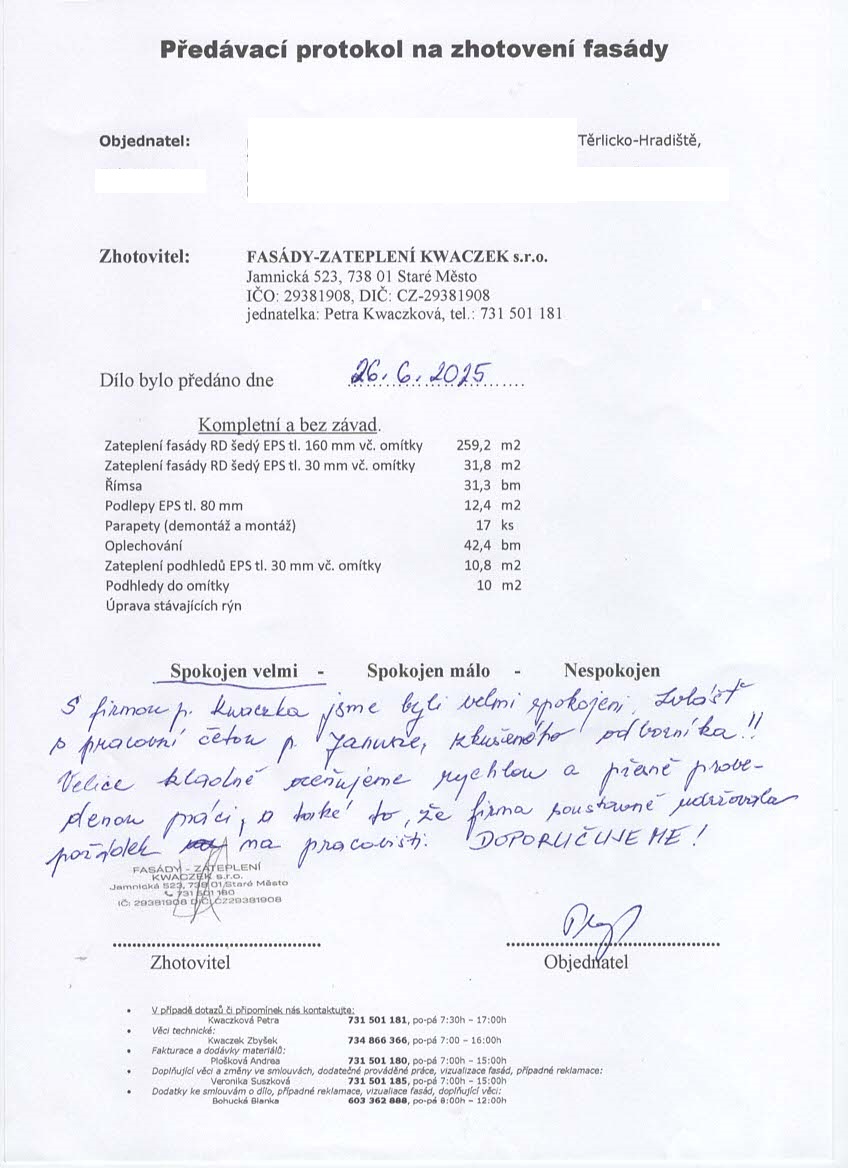 Předávací protokol na zhotovení fasády
Objednatel: Těrlicko-Hradiště,
Zhotovitel: FASÁDY-ZATEPLENÍ KWACZEK s.r.o.
Jamnická 523, 738 01 Staré Město
IČO: 29381908, DIČ: CZ-29381908
jednatelka: Petra Kwaczková, tel.: 731 501 181
Dílo bylo předáno dne 26.6.2025
Kompletní a bez závad.
Zateplení fasády RD šedý EPS tl. 160 mm vč. omítky 259,2 m2
Zateplení fasády RD šedý EPS tl. 30 mm vč. omítky 31,8 m2
Římsa 31,3 bm
Podlepy EPS tl. 80 mm 12,4 m2
Parapety (demontáž a montáž) 17 ks
Oplechování 42,4 bm
Zateplení podhledů EPS tl. 30 mm vč. omítky 10,8 m2
Podhledy do omítky 10 m2
Úprava stávajících rýn
Spokojen velmi - Spokojen málo - Nespokojen
S firmou p. Kwaczka jsme byli velmi spokojeni. Zvlášť
s pracovní četou p. Janusze, zkušeného odborníka!!
Velice kladně oceňujeme rychlou a přesně prove-
denou práci, a také to, že firma soustavně udržovala
pořádek na pracovišti. DOPORUČUJEME!
FASÁDY - ZATEPLENÍ
KWACZEK s.r.o.
Jamnická 523, 738 01 Staré Město
731 501 180
IČ: 29381908 DIČ: CZ29381908
Zhotovitel Objednatel
• V případě dotazů či připomínek nás kontaktujte:
Kwaczková Petra 731 501 181, po-pá 7:30h – 17:00h
• Věci technické:
Kwaczek Zbyšek 734 866 366, po-pá 7:00 – 16:00h
• Fakturace a dodávky materiálů:
Plošková Andrea 731 501 180, po-pá 7:00h – 15:00h
• Doplňující věci a změny ve smlouvách, dodatečné prováděné práce, vizualizace fasád, případné reklamace:
Veronika Suszková 731 501 185, po-pá 7:00h – 15:00h
• Dodatky ke smlouvám o dílo, případné reklamace, vizualiace fasád, doplňující věci:
Bohucká Blanka 603 362 888, po-pá 8:00h – 12:00h